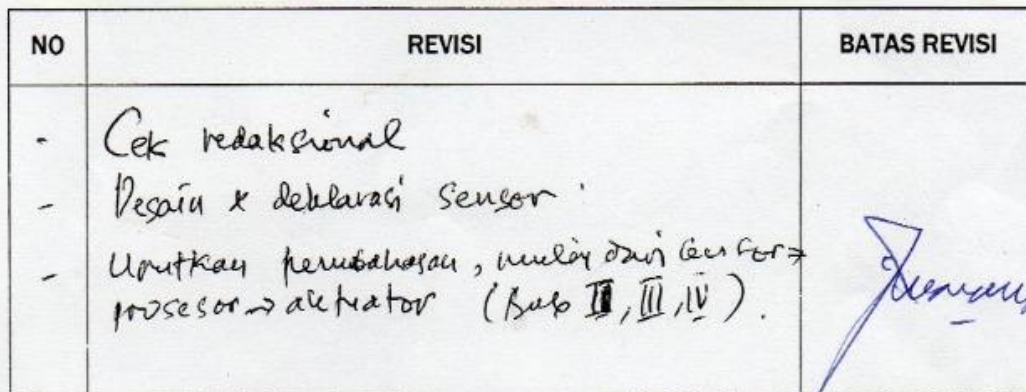 NO REVISI BATAS REVISI
- Cek redaksional
- Desain & deklarasi sensor
- Urutkan pembahasan, mulai dari sensor →
prosesor → aktuator (Bab II, III, IV).